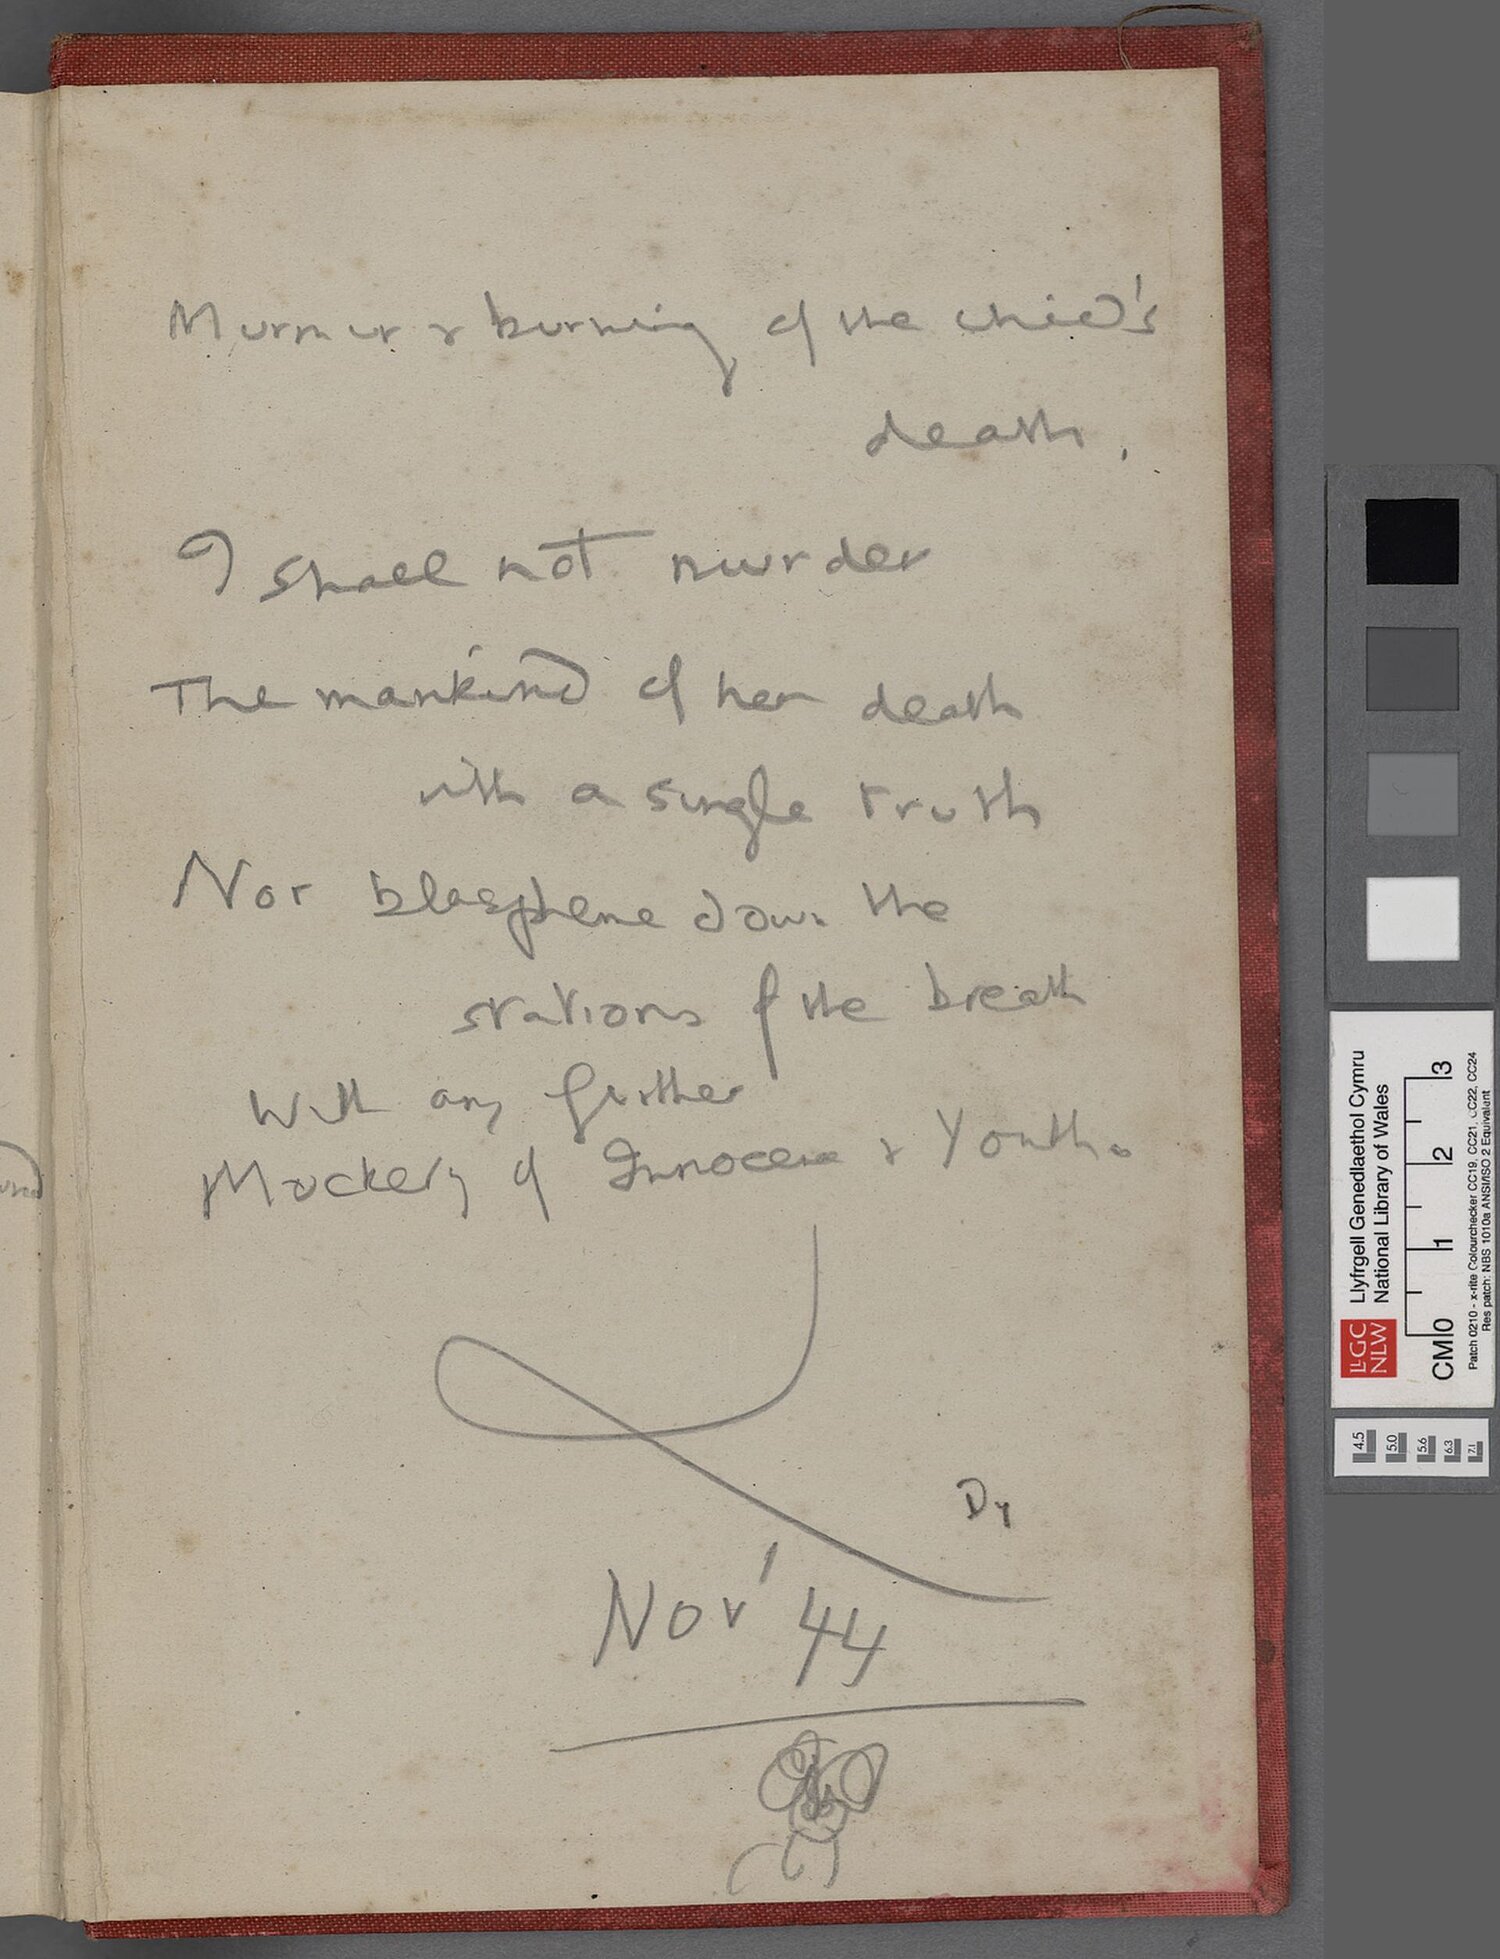 Murmur & burning of the child's
death.
I shall not murder
The mankind of her death
with a single truth
Nor blaspheme down the
stations of the breath
With any further
Mockery of Innocence & Youth.
Nov' 44
Llyfrgell Genedlaethol Cymru
National Library of Wales
LLGC
NLW
CM 0 1 2 3
Patch 0210 - x-rite Colourchecker CC19, CC21, CC22, CC24
Res patch: NBS 1010a ANSI/ISO 2 Equivalent
4.5 5.0 5.6 6.3 7.1